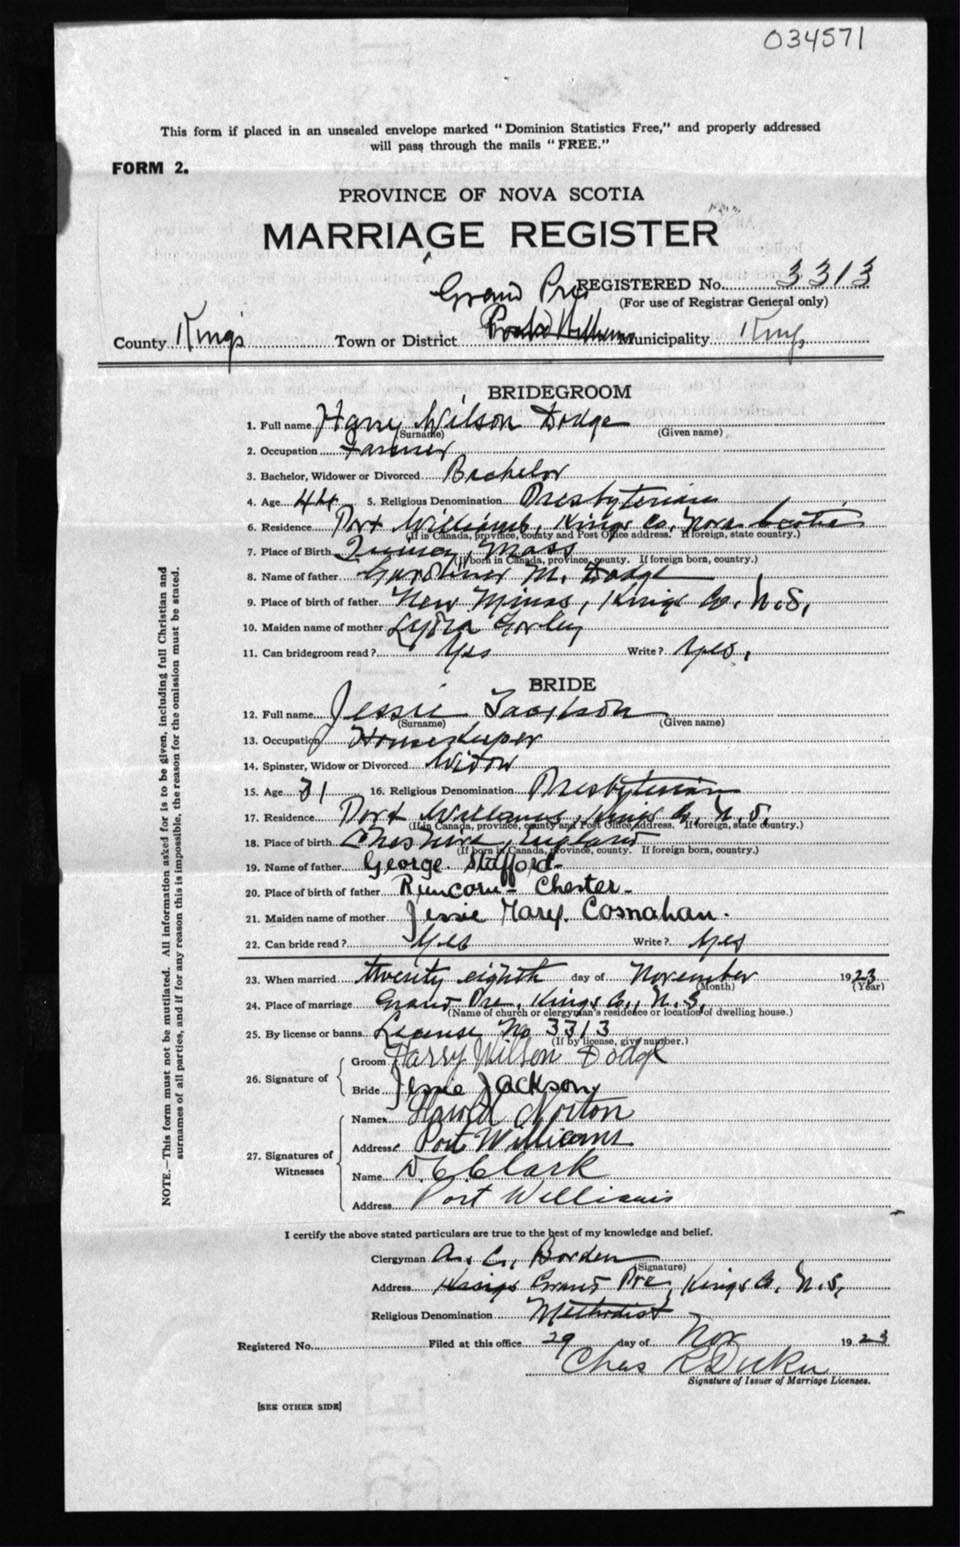 034571
This form if placed in an unsealed envelope marked "Dominion Statistics Free," and properly addressed
will pass through the mails "FREE."
FORM 2.
PROVINCE OF NOVA SCOTIA
MARRIAGE REGISTER
REGISTERED No. 3313
(For use of Registrar General only)
Grand Pre
County Kings Town or District Port Williams Municipality Kings
BRIDEGROOM
1. Full name Harry Wilson Dodge
(Surname) (Given name)
2. Occupation Farmer
3. Bachelor, Widower or Divorced Bachelor
4. Age 44 5. Religious Denomination Presbyterian
6. Residence Port Williams, Kings Co. Nova Scotia
(If in Canada, province, county and Post Office address. If foreign, state country.)
7. Place of Birth Quincy, Mass
(If born in Canada, province, county. If foreign born, country.)
8. Name of father Gardiner M. Dodge
9. Place of birth of father New Minas, Kings Co. N.S.
10. Maiden name of mother Lydia
11. Can bridegroom read? Yes Write? Yes.
BRIDE
12. Full name Jessie Jackson
(Surname) (Given name)
13. Occupation Housekeeper
14. Spinster, Widow or Divorced Widow
15. Age 31 16. Religious Denomination Presbyterian
17. Residence Port Williams, Kings Co. N.S.
(If in Canada, province, county and Post Office address. If foreign, state country.)
18. Place of birth Cheshire, England
(If born in Canada, province, county. If foreign born, country.)
19. Name of father George Stafford-
20. Place of birth of father Runcorn- Chester-
21. Maiden name of mother Jessie Mary. Cosnahan.
22. Can bride read? Yes Write? Yes
23. When married twenty eighth day of November 1923
(Month) (Year)
24. Place of marriage Grand Pre, Kings Co., N.S.
(Name of church or clergyman's residence or location of dwelling house.)
25. By license or banns License No 3313
(If by license, give number.)
26. Signature of Groom Harry Wilson Dodge
Bride Jessie Jackson
27. Signatures of Witnesses
Name Harold Norton
Address Port Williams
Name D. C. Clark
Address Port Williams
I certify the above stated particulars are true to the best of my knowledge and belief.
Clergyman A. C. Borden
(Signature)
Address Grand Pre, Kings Co. N.S.
Religious Denomination Methodist
Registered No. Filed at this office 29 day of Nov 1923
Chas
Signature of Issuer of Marriage Licenses.
[SEE OTHER SIDE]
NOTE.—This form must not be mutilated. All information asked for is to be given, including full Christian and
surnames of all parties, and if for any reason this is impossible, the reason for the omission must be stated.